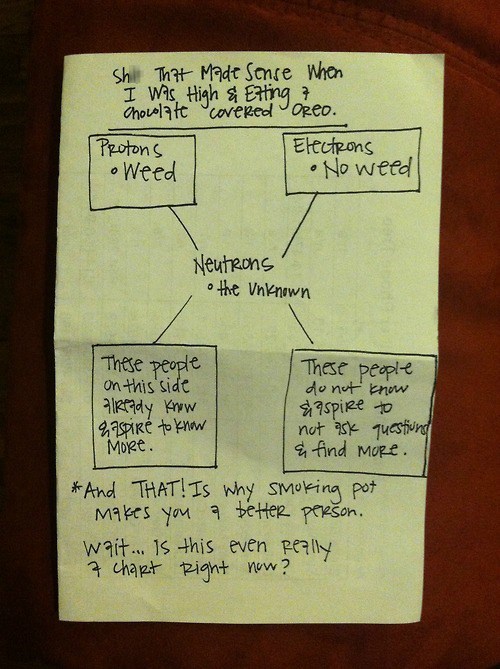 Sh That Made Sense When
I Was High & Eating a
chocolate covered Oreo.
Protons
• Weed
Electrons
• No weed
Neutrons
• the Unknown
These people
on this side
already know
& aspire to know
More.
These people
do not know
& aspire to
not ask questions
& find more.
*And THAT! Is why smoking pot
makes you a better person.
Wait... Is this even really
a chart right now?